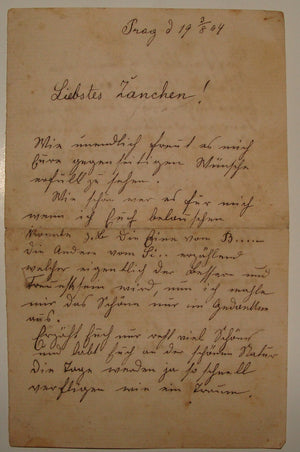 Prag d 19 3/8 04
Liebstes Länchen!
Wie unendlich freut es mich
Eure gegenseitigen Wünsche
erfüllt zu sehen.
Wie schön wer es für mich
wenn ich Euch belauschen
könnte z.B. Die Eine vom B.....
die Andere vom Si.. erzählend
welcher eigentlich der Bessere und
sein wird, nun ich mahle
mir das Schöne nur in Gedanken
aus.
Erzählt Euch nur recht viel Schönes
und labt Euch an der schönen Natur
die Tage werden ja so schnell
verfliegen wie ein Traum.